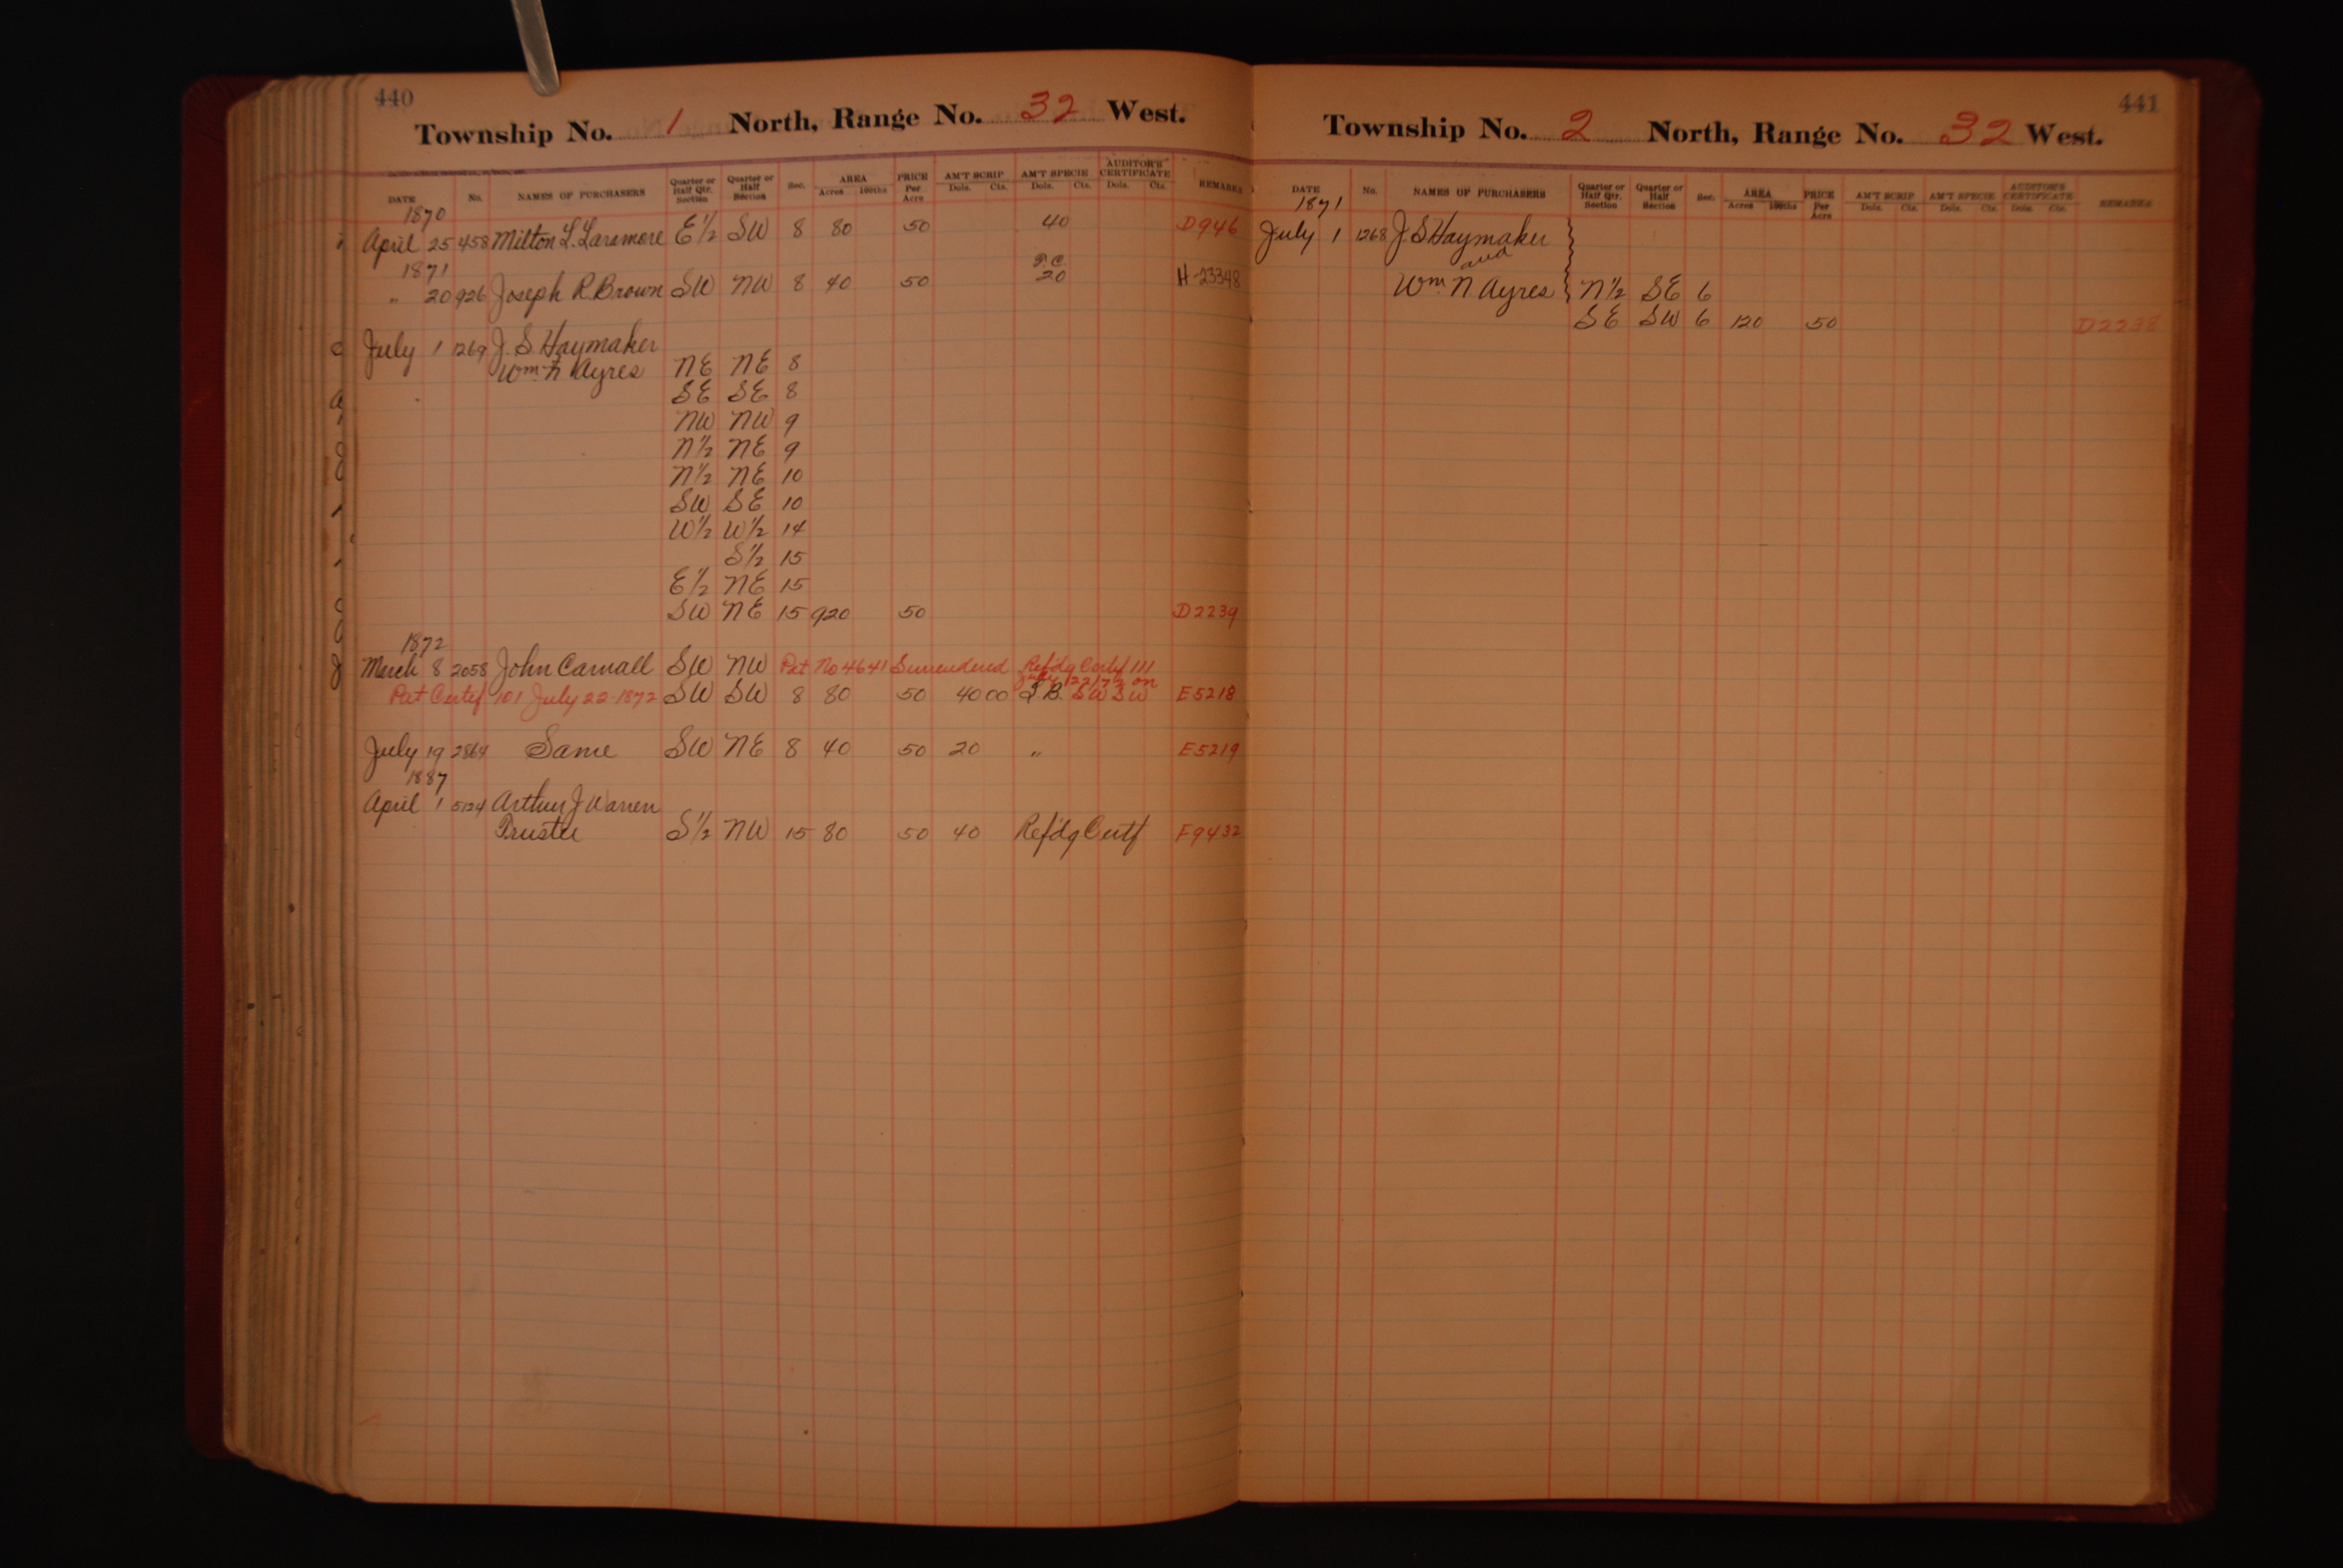 440
Township No. 1 North, Range No. 32 West.
DATE No. NAMES OF PURCHASERS Quarter or Half Qtr. Section Quarter or Half Section Sec. AREA Acres 100ths PRICE Per Acre AM'T SCRIP Dols. Cts. AM'T SPECIE Dols. Cts. AUDITOR'S CERTIFICATE Dols. Cts. REMARKS
1870
April 25 458 Milton L. Laramore E½ SW 8 80 50 40 D946
1871
" 20 926 Joseph R. Brown SW NW 8 40 50 20 H-23348
July 1 1269 J. S. Haymaker
Wm N Ayres NE NE 8
SE SE 8
NW NW 9
N½ NE 9
N½ NE 10
SW SE 10
W½ W½ 14
S½ 15
E½ NE 15
SW NE 15 920 50 D2239
1872
March 8 2058 John Carnall SW NW Pat No 4641 Surrendered Refdg Certf 111
July 22/72 on
Pat Certif 101 July 22-1872 SW SW 8 80 50 40 00 S.B. SW SW E5218
July 19 2864 Same SW NE 8 40 50 20 " E5219
1887
April 1 5124 Arthur J Warren
Trustee S½ NW 15 80 50 40 Ref'dg Certf F9432
441
Township No. 2 North, Range No. 32 West.
DATE No. NAMES OF PURCHASERS Quarter or Half Qtr. Section Quarter or Half Section Sec. AREA Acres 100ths PRICE Per Acre AM'T SCRIP Dols. Cts. AM'T SPECIE Dols. Cts. AUDITOR'S CERTIFICATE Dols. Cts. REMARKS
1871
July 1 1268 J. S Haymaker
and
Wm N Ayres N½ SE 6
SE SW 6 120 50 D2238